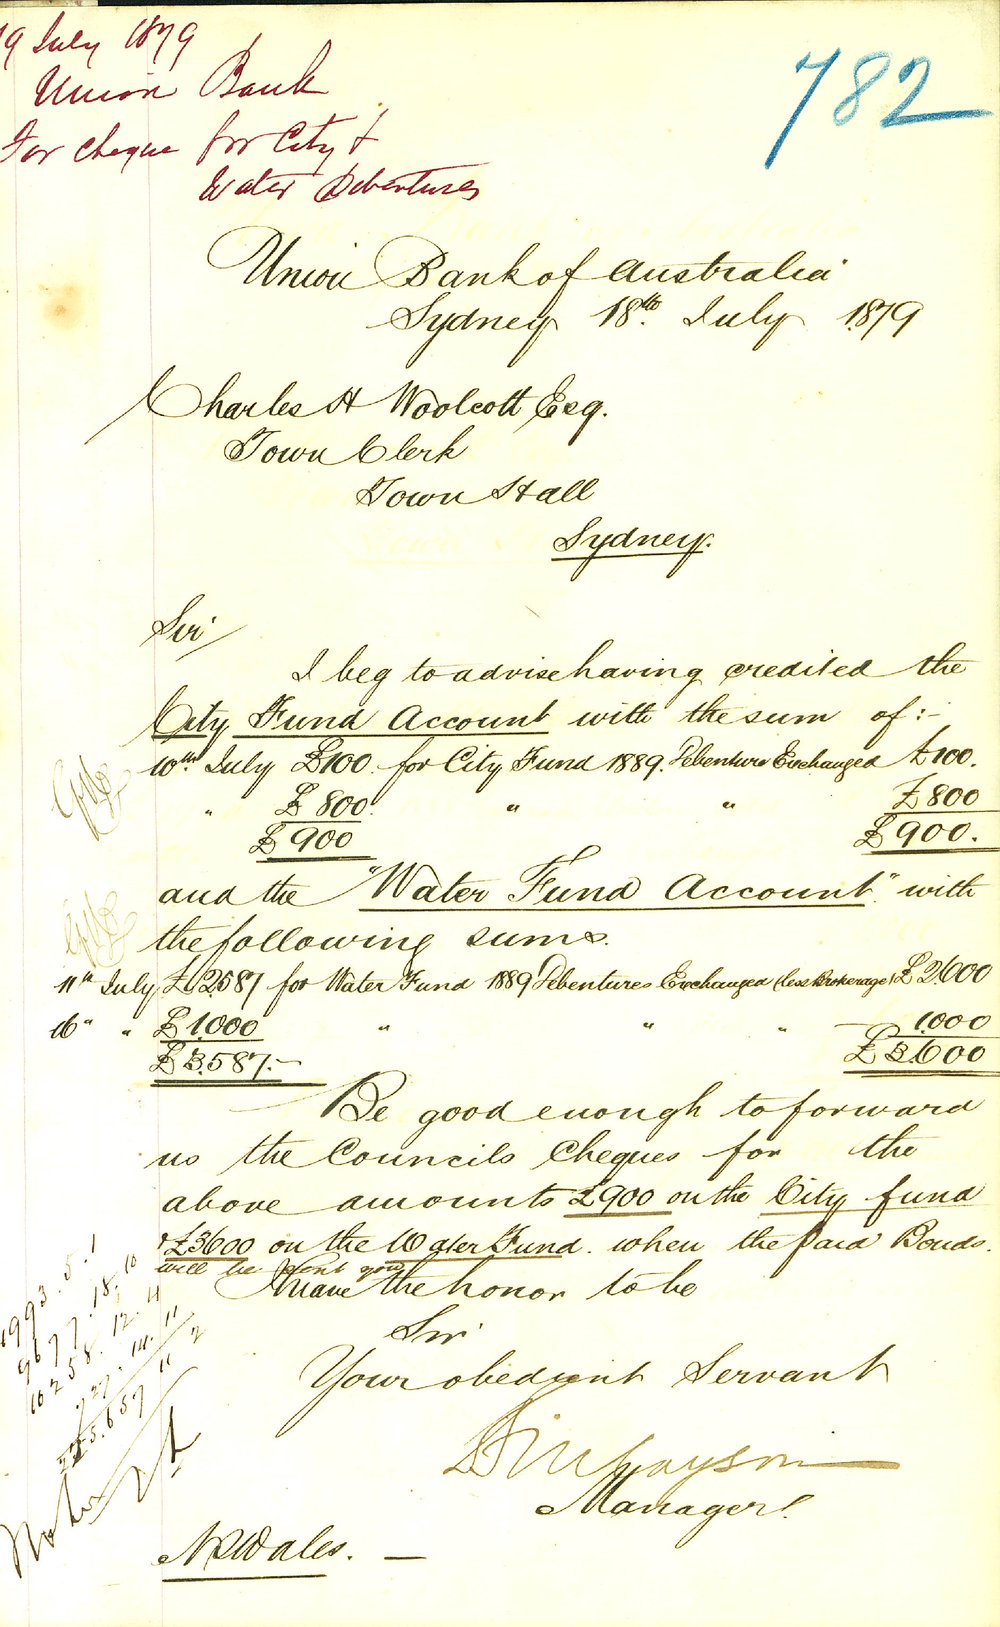 19 July 1879
Union Bank
For cheque for City &
Water Debentures
782
Union Bank of Australia
Sydney 18th July 1879
Charles H Woolcott Esq.
Town Clerk
Town Hall
Sydney.
Sir
I beg to advise having credited the
City Fund Account with the sum of :-
10th July £100. for City Fund 1889. Debenture Exchanged £100.
" £800. " " £800
£900 £900.
and the "Water Fund Account" with
the following sums.
11th July £2587 for Water Fund 1889 Debentures Exchanged (less Brokerage) £2600
16" " £1000 " " " 1000
£3.587.- £3600
Be good enough to forward
us the Councils Cheques for the
above amounts £900 on the City fund
& £3600 on the Water Fund. when the paid Bonds.
will be sent you
I have the honor to be
Sir
Your obedient Servant
Manager
N S Wales.